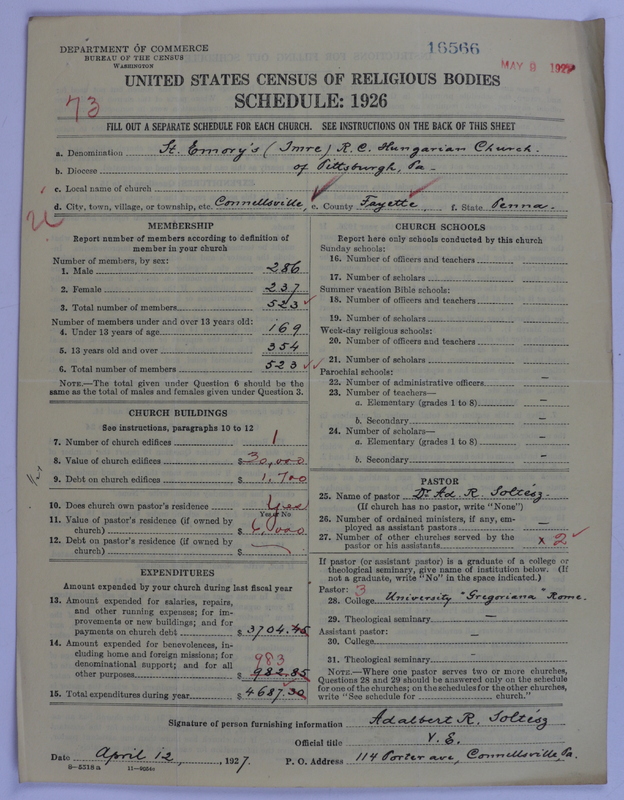 DEPARTMENT OF COMMERCE
BUREAU OF THE CENSUS
WASHINGTON
16566
MAY 9 1927
UNITED STATES CENSUS OF RELIGIOUS BODIES
SCHEDULE: 1926
73
FILL OUT A SEPARATE SCHEDULE FOR EACH CHURCH. SEE INSTRUCTIONS ON THE BACK OF THIS SHEET
a. Denomination St. Emory's (Imre) R.C. Hungarian Church.
b. Diocese of Pittsburgh, Pa
c. Local name of church
d. City, town, village, or township, etc. Connellsville, e. County Fayette, f. State Penna.
MEMBERSHIP
Report number of members according to definition of
member in your church
Number of members, by sex:
1. Male 286
2. Female 237
3. Total number of members 523
Number of members under and over 13 years old:
4. Under 13 years of age 169
5. 13 years old and over 354
6. Total number of members 523
NOTE.—The total given under Question 6 should be the
same as the total of males and females given under Question 3.
CHURCH BUILDINGS
See instructions, paragraphs 10 to 12
7. Number of church edifices 1
8. Value of church edifices $30,000
9. Debt on church edifices $1,700
10. Does church own pastor's residence Yes
Yes or No
11. Value of pastor's residence (if owned by
church) $6,000
12. Debt on pastor's residence (if owned by
church) $ —
EXPENDITURES
Amount expended by your church during last fiscal year
13. Amount expended for salaries, repairs,
and other running expenses; for im-
provements or new buildings; and for
payments on church debt $3704.45
14. Amount expended for benevolences, in-
cluding home and foreign missions; for
denominational support; and for all
983
other purposes $982.85
15. Total expenditures during year $4687.30
CHURCH SCHOOLS
Report here only schools conducted by this church
Sunday schools:
16. Number of officers and teachers
17. Number of scholars
Summer vacation Bible schools:
18. Number of officers and teachers
19. Number of scholars
Week-day religious schools:
20. Number of officers and teachers
21. Number of scholars
Parochial schools:
22. Number of administrative officers —
23. Number of teachers—
a. Elementary (grades 1 to 8) —
b. Secondary —
24. Number of scholars—
a. Elementary (grades 1 to 8) —
b. Secondary —
PASTOR
25. Name of pastor Dr. Ad. R. Soltész.
(If church has no pastor, write "None")
26. Number of ordained ministers, if any, em-
ployed as assistant pastors —
27. Number of other churches served by the
pastor or his assistants x 2
If pastor (or assistant pastor) is a graduate of a college or
theological seminary, give name of institution below. (If
not a graduate, write "No" in the space indicated.)
Pastor: 3
28. College University "Gregoriana" Rome.
29. Theological seminary —
Assistant pastor:
30. College —
31. Theological seminary -
NOTE.—Where one pastor serves two or more churches,
Questions 28 and 29 should be answered only on the schedule
for one of the churches; on the schedules for the other churches,
write "See schedule for church."
Signature of person furnishing information Adalbert R. Soltész
Official title V. E.
Date April 12, 1927. P. O. Address 114 Porter ave, Connellsville, Pa.
8—5318 a